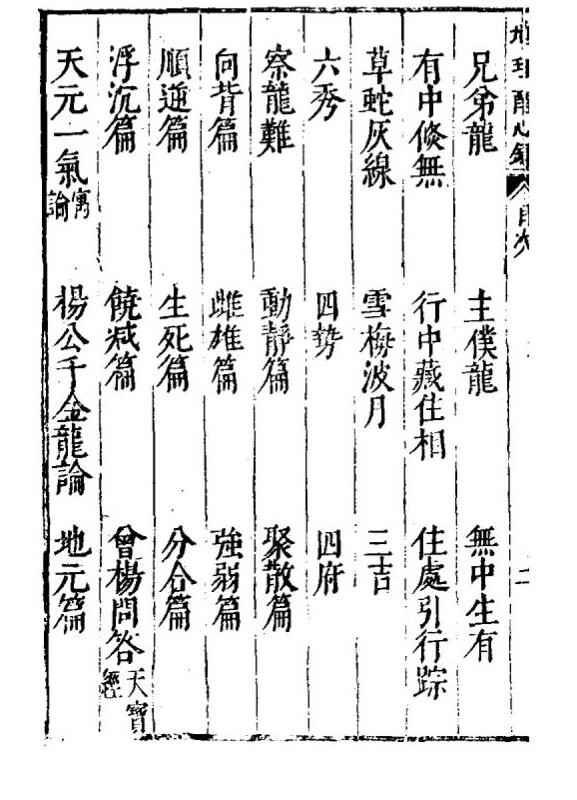 地理醒心錄 目次 二
兄弟龍 主僕龍 無中生有
有中倏無 行中藏住相 住處引行踪
草蛇灰線 雪梅波月 三吉
六秀 四勢 四府
察龍難 動靜篇 聚散篇
向背篇 雌雄篇 強弱篇
順逆篇 生死篇 分合篇
浮沉篇 饒减篇 曾楊問答 天寶經
天元一氣 寓論 楊公千金龍論 地元篇